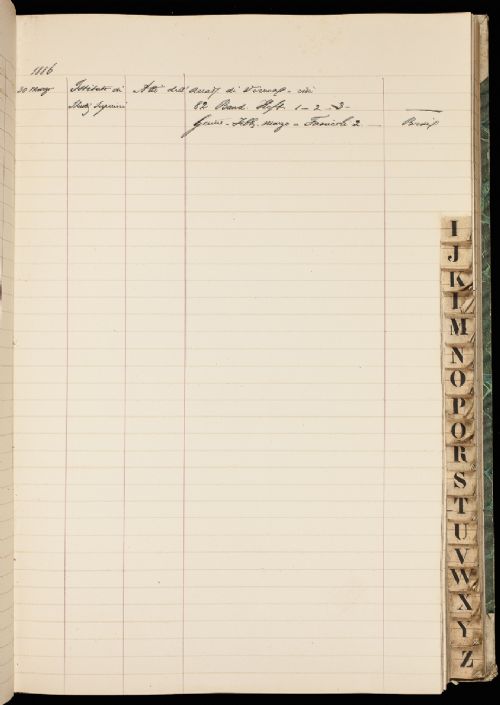 1886
30 Marzo Istituto di Atti dell' Accad. di Vienna - cioè
Studj Superiori 82 Band. Heft. 1 - 2 - 3 -
Genn - Febb. marzo = Fascicolo 2
I
J
K
L
M
N
O
P
Q
R
S
T
U
V
W
X
Y
Z